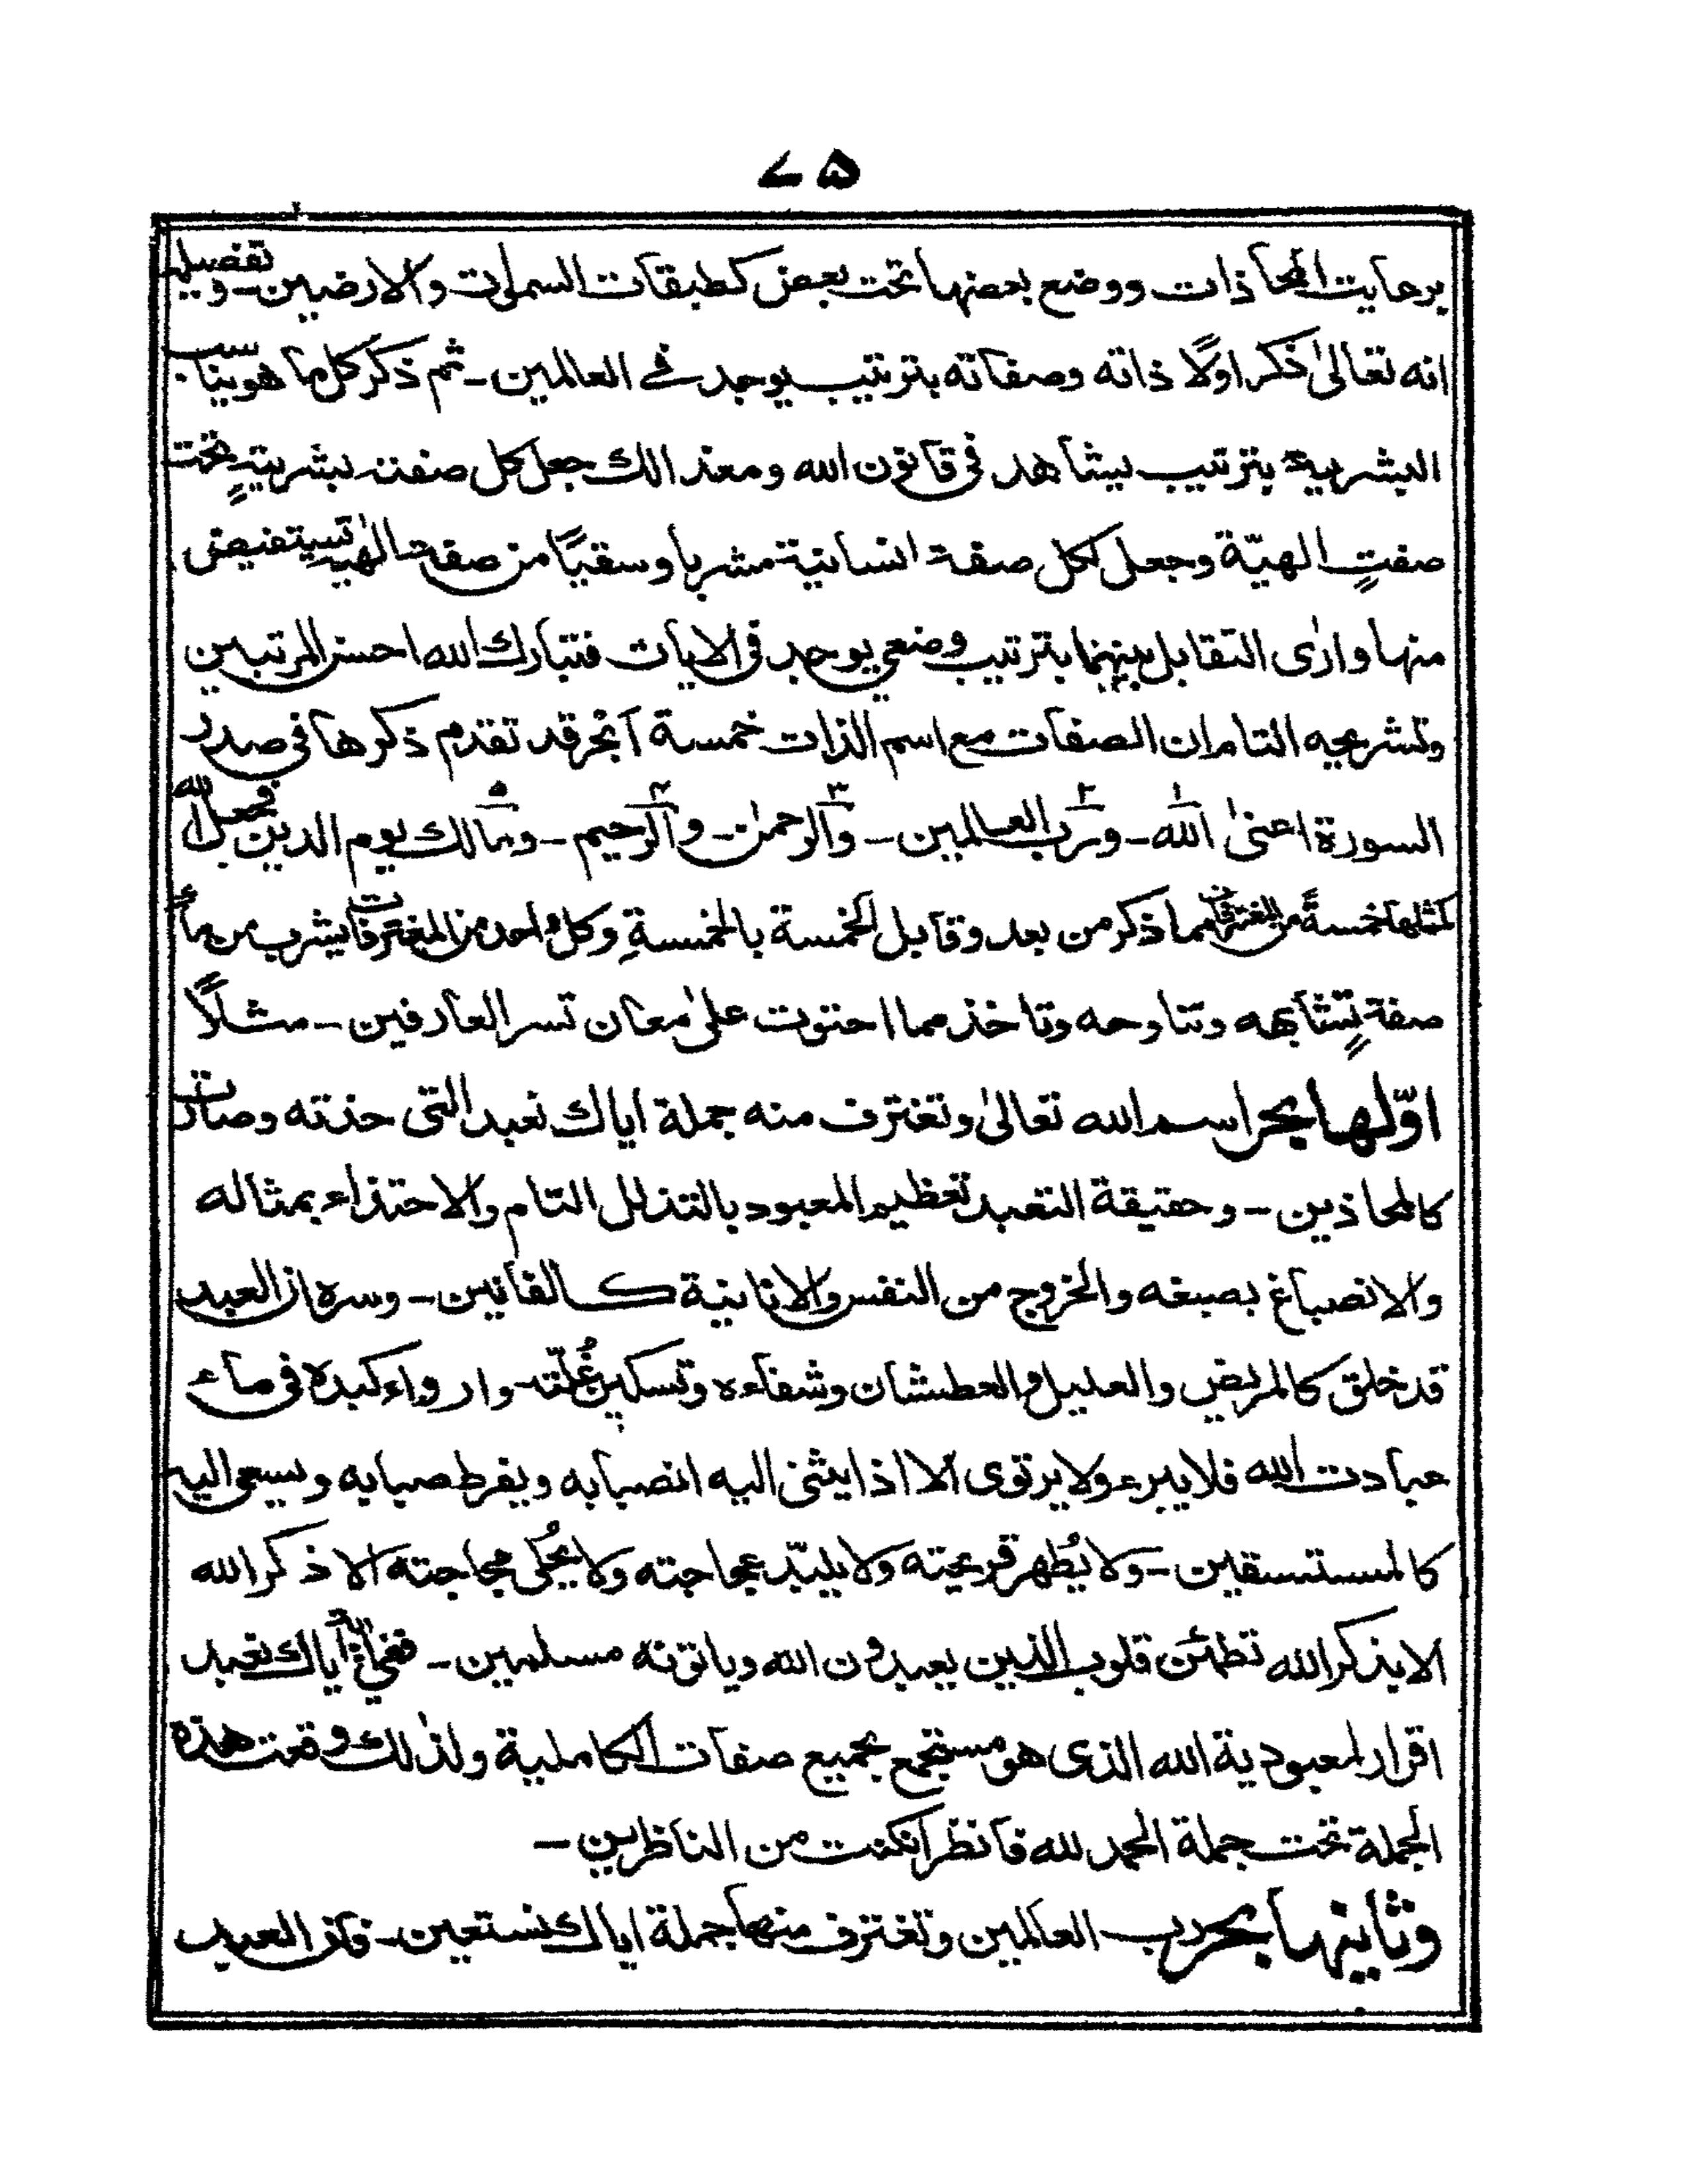 ۷۵
برعایت المحاذات ووضع بعضها تحت بعض کطبقات السمٰوات والارضین - وتفصیله
انه تعالیٰ ذکر اولًا ذاته وصفاته بترتیب یوجد فی العالمین - ثم ذکر کل ما هو یناسب
البشریة بترتیب یشاهد فی قانون الله ومعذالک جعل کل صفت بشریةٍ تحت
صفتٍ الهیّة وجعل لکل صفة انسانیة مشربا وسقیًا من صفة الٰهیة تستفیض
منها وارٰی التقابل بینهما بترتیب وضعی یوجد فی الایات فتبارک الله احسن المرتبین
وتشریحه التام ان الصفات مع اسم الذات خمسة اَبحُر قد تقدم ذکرها فی صدر
السورة اعنیٰ الله ۱ - ورب العالمین ۲ - والرحمٰن ۳ - والرحیم ۴ - ومالک یوم الدین ۵ فجعل الله
کمثلها خمسةً من المغترفات مما ذکر من بعد وقابل الخمسة بالخمسةِ وکل واحد من المغترفات یشرب من ماء
صفةٍ تشابهه وتناوحه وتاخذ مما احتوت علیٰ معان تسر العارفین - مثلًا
اوّلها بحر اسم الله تعالیٰ وتغترف منه جملة ایاک نعبد التی حذته وصارت
کالمحاذین - وحقیقة التعبد تعظیم المعبود بالتذلل التام والاحتذاء بمثاله
والانصباغ بصبغه والخروج من النفس والانانیة کالفانین - وسره ان العبد
قد خلق کالمریض والعلیل والعطشان وشفاءه وتسکین غُلّته وارواء کبده فی ماء
عبادت الله فلا یبرء ولا یرتوی الا اذا یثنی الیه انصبابه ویفرط صبابه ویسعی الیه
کالمستسقین - ولا یُطهر قریحته ولا یلبّد عجاجته ولا یُحلی مجاجته الا ذکر الله
الا بذکر الله تطمئن قلوب الذین یعبدون الله ویاتونه مسلمین - ففی اٰیة ایاک نعبد
اقرار لمعبودیة الله الذی هو مستجمع بجمیع صفات الکاملیة ولذٰلک وقعت هذه
الجملة تحت جملة الحمد لله فانظر ان کنت من الناظرین -
وثانیها بحر رب العالمین وتغترف منها جملة ایاک نستعین - فان العبد